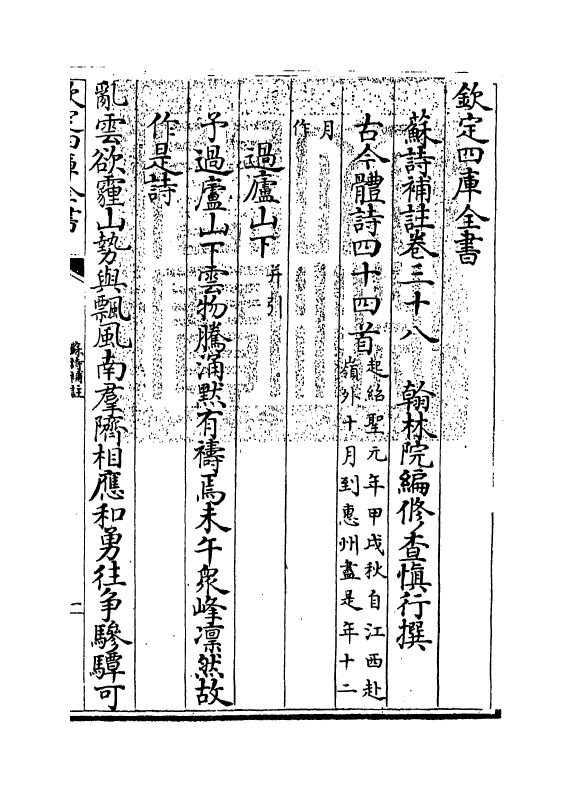 欽定四庫全書
蘇詩補註卷三十八　翰林院編修查慎行撰
古今體詩四十四首起紹聖元年甲戌秋自江西赴
嶺外十月到惠州盡是年十二
月
作
過廬山下并引
予過廬山下雲物騰涌黙有禱焉未午衆峰凛然故
作是詩
亂雲欲霾山勢與飄風南羣隮相應和勇往争驂驔可
欽定四庫全書
蘇詩補註
一